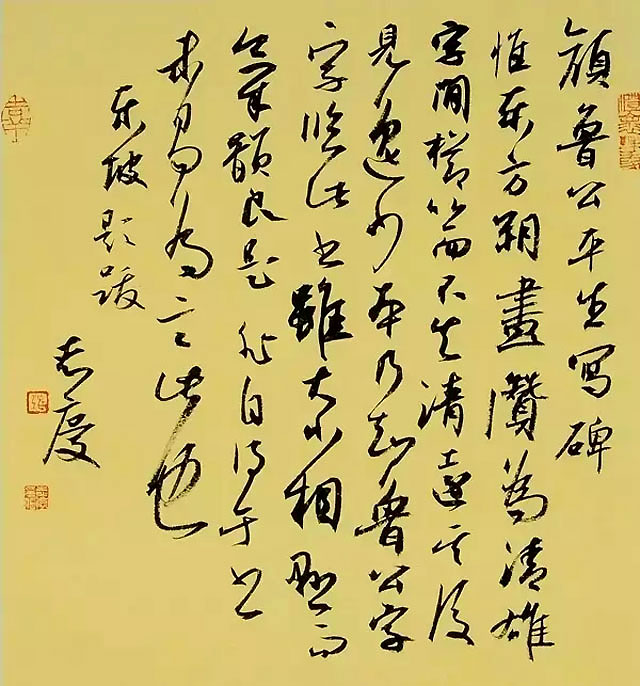 顔魯公平生寫碑
惟東方朔畫讚為清雄
字間櫛比而不失清遠其後
見逸少本乃知魯公字
字臨此書雖大小相懸而
氣韻良是非自得于書
未易為言此也
東坡題跋
志慶